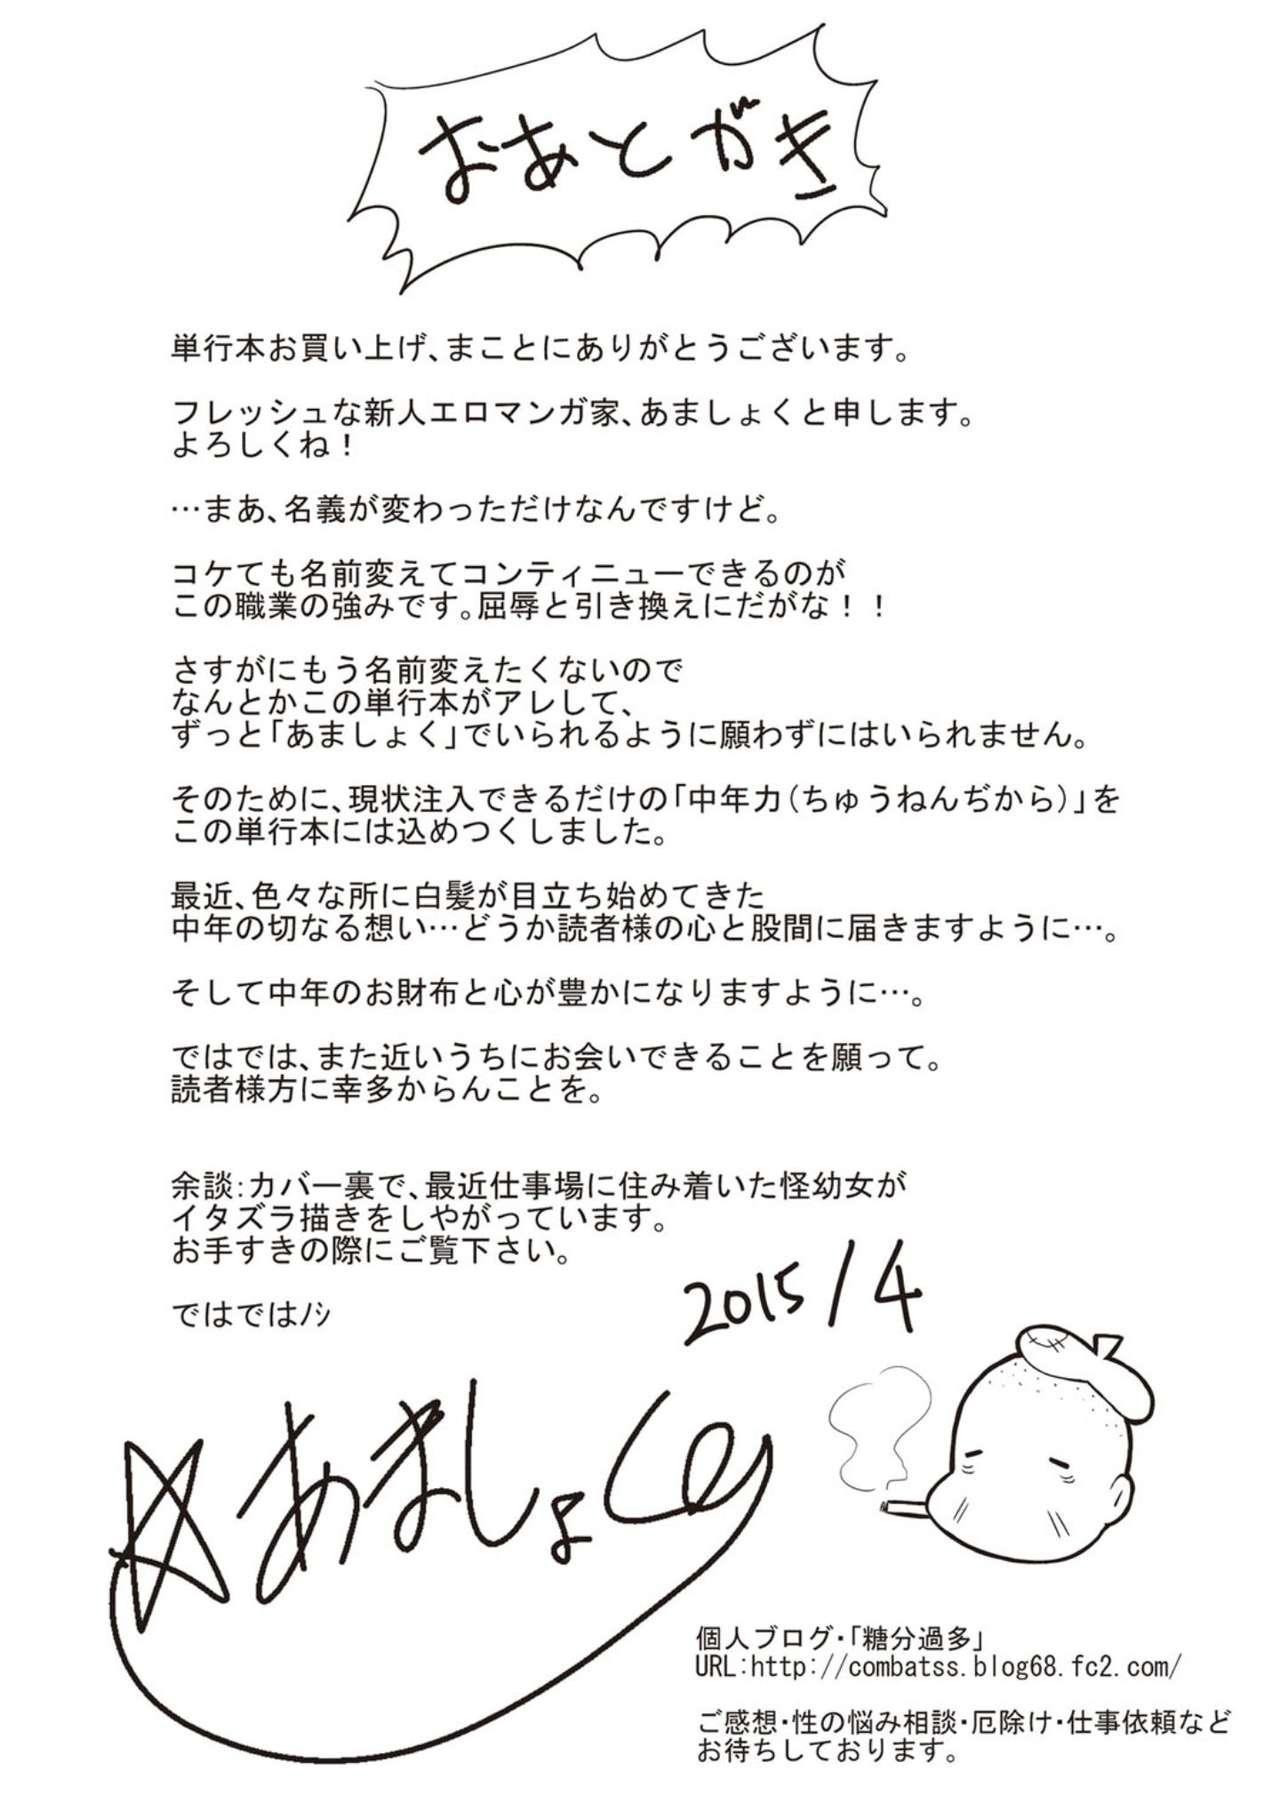 おあとがき
単行本お買い上げ、まことにありがとうございます。
フレッシュな新人エロマンガ家、あましょくと申します。
よろしくね！
…まあ、名義が変わっただけなんですけど。
コケても名前変えてコンティニューできるのが
この職業の強みです。屈辱と引き換えにだがな！！
さすがにもう名前変えたくないので
なんとかこの単行本がアレして、
ずっと「あましょく」でいられるように願わずにはいられません。
そのために、現状注入できるだけの「中年力（ちゅうねんぢから）」を
この単行本には込めつくしました。
最近、色々な所に白髪が目立ち始めてきた
中年の切なる想い…どうか読者様の心と股間に届きますように…。
そして中年のお財布と心が豊かになりますように…。
ではでは、また近いうちにお会いできることを願って。
読者様方に幸多からんことを。
余談：カバー裏で、最近仕事場に住み着いた怪幼女が
イタズラ描きをしやがっています。
お手すきの際にご覧下さい。
ではではﾉｼ
2015/4
☆あましょく
個人ブログ・「糖分過多」
URL:http://combatss.blog68.fc2.com/
ご感想・性の悩み相談・厄除け・仕事依頼など
お待ちしております。